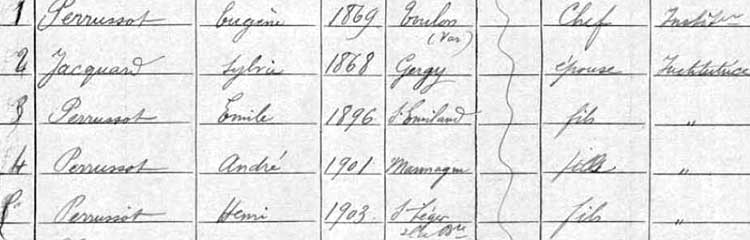 1 Perrussot Eugène 1869 Toulon (Var) Chef Institr
2 Jacquard Sylvie 1868 Gergy épouse Institutrice
3 Perrussot Emile 1896 St Emiland fils "
4 Perrussot André 1901 Marmagne "
Perrussot Henri 1903 St Léger s/la Bre fils "